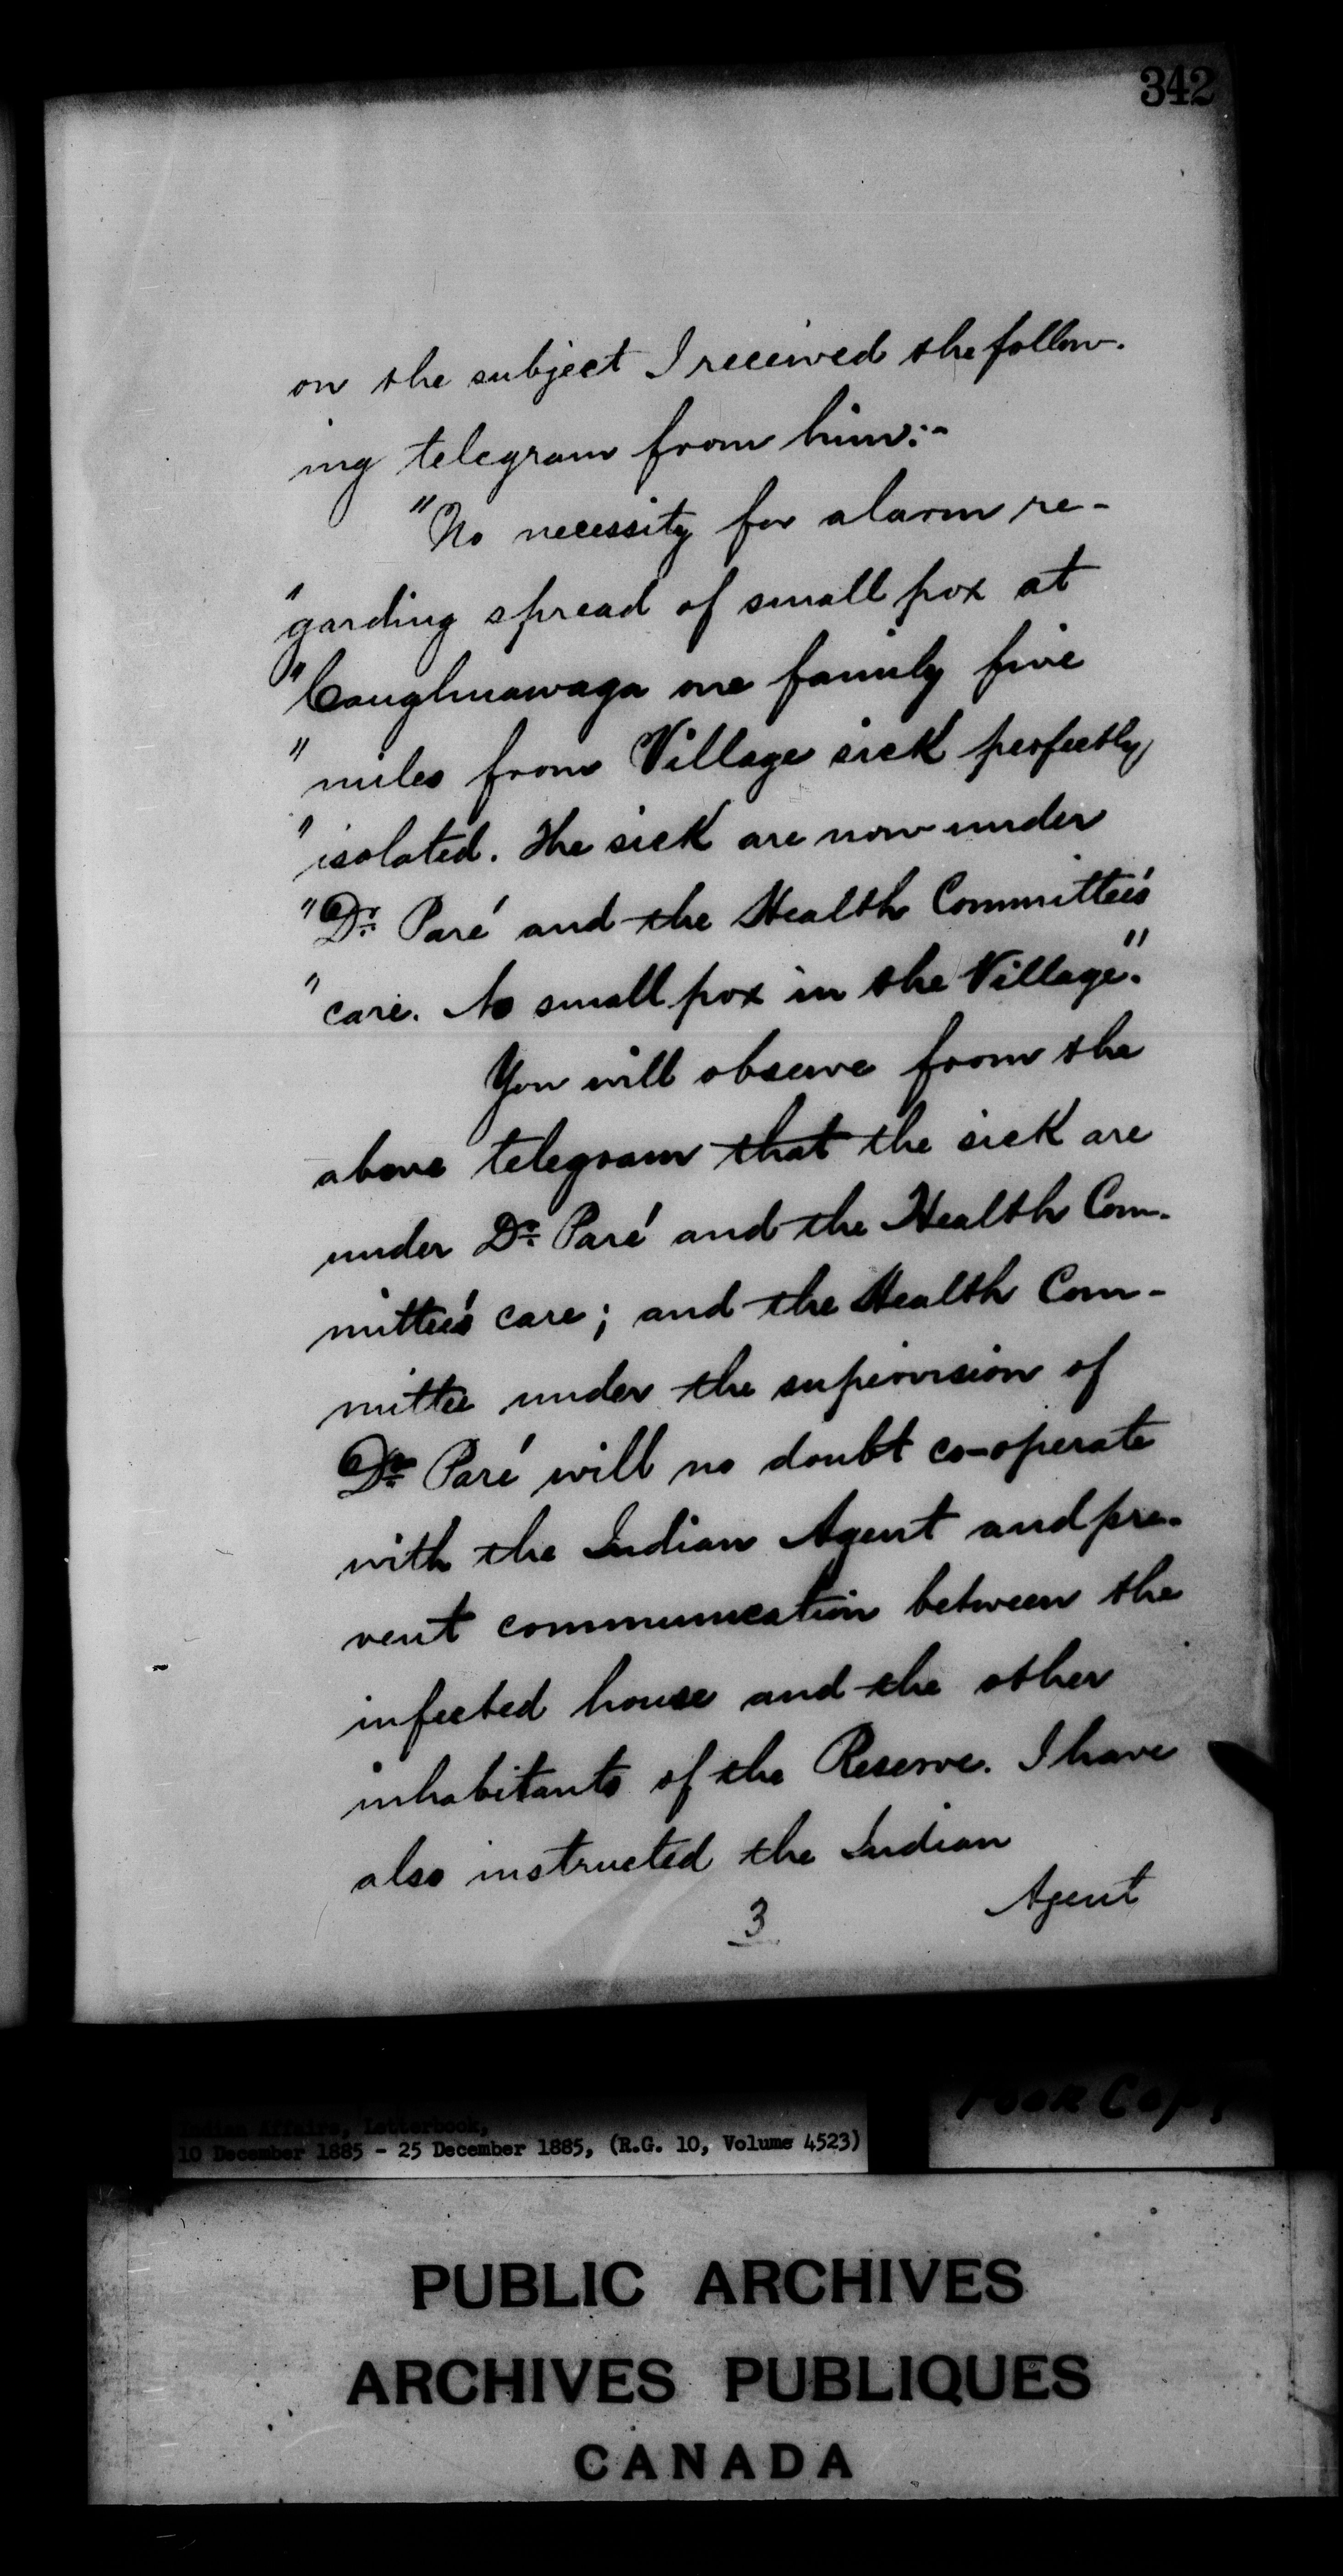 342
on the subject I received the follow-
ing telegram from him:-
"No necessity for alarm re-
"garding spread of small pox at
"Caughnawaga one family five
"miles from Village sick perfectly
"isolated. The sick are now under
"Dr. Paré and the Health Committee's
"care. No small pox in the Village."
You will observe from the
above telegram that the sick are
under Dr. Paré and the Health Com-
mittee's care; and the Health Com-
mittee under the supervision of
Dr. Paré will no doubt co-operate
with the Indian Agent and pre-
vent communication between the
infected house and the other
inhabitants of the Reserve. I have
also instructed the Indian
Agent
3
Indian Affairs, Letterbook,
10 December 1885 - 25 December 1885, (R.G. 10, Volume 4523)
Poor Copy
PUBLIC ARCHIVES
ARCHIVES PUBLIQUES
CANADA